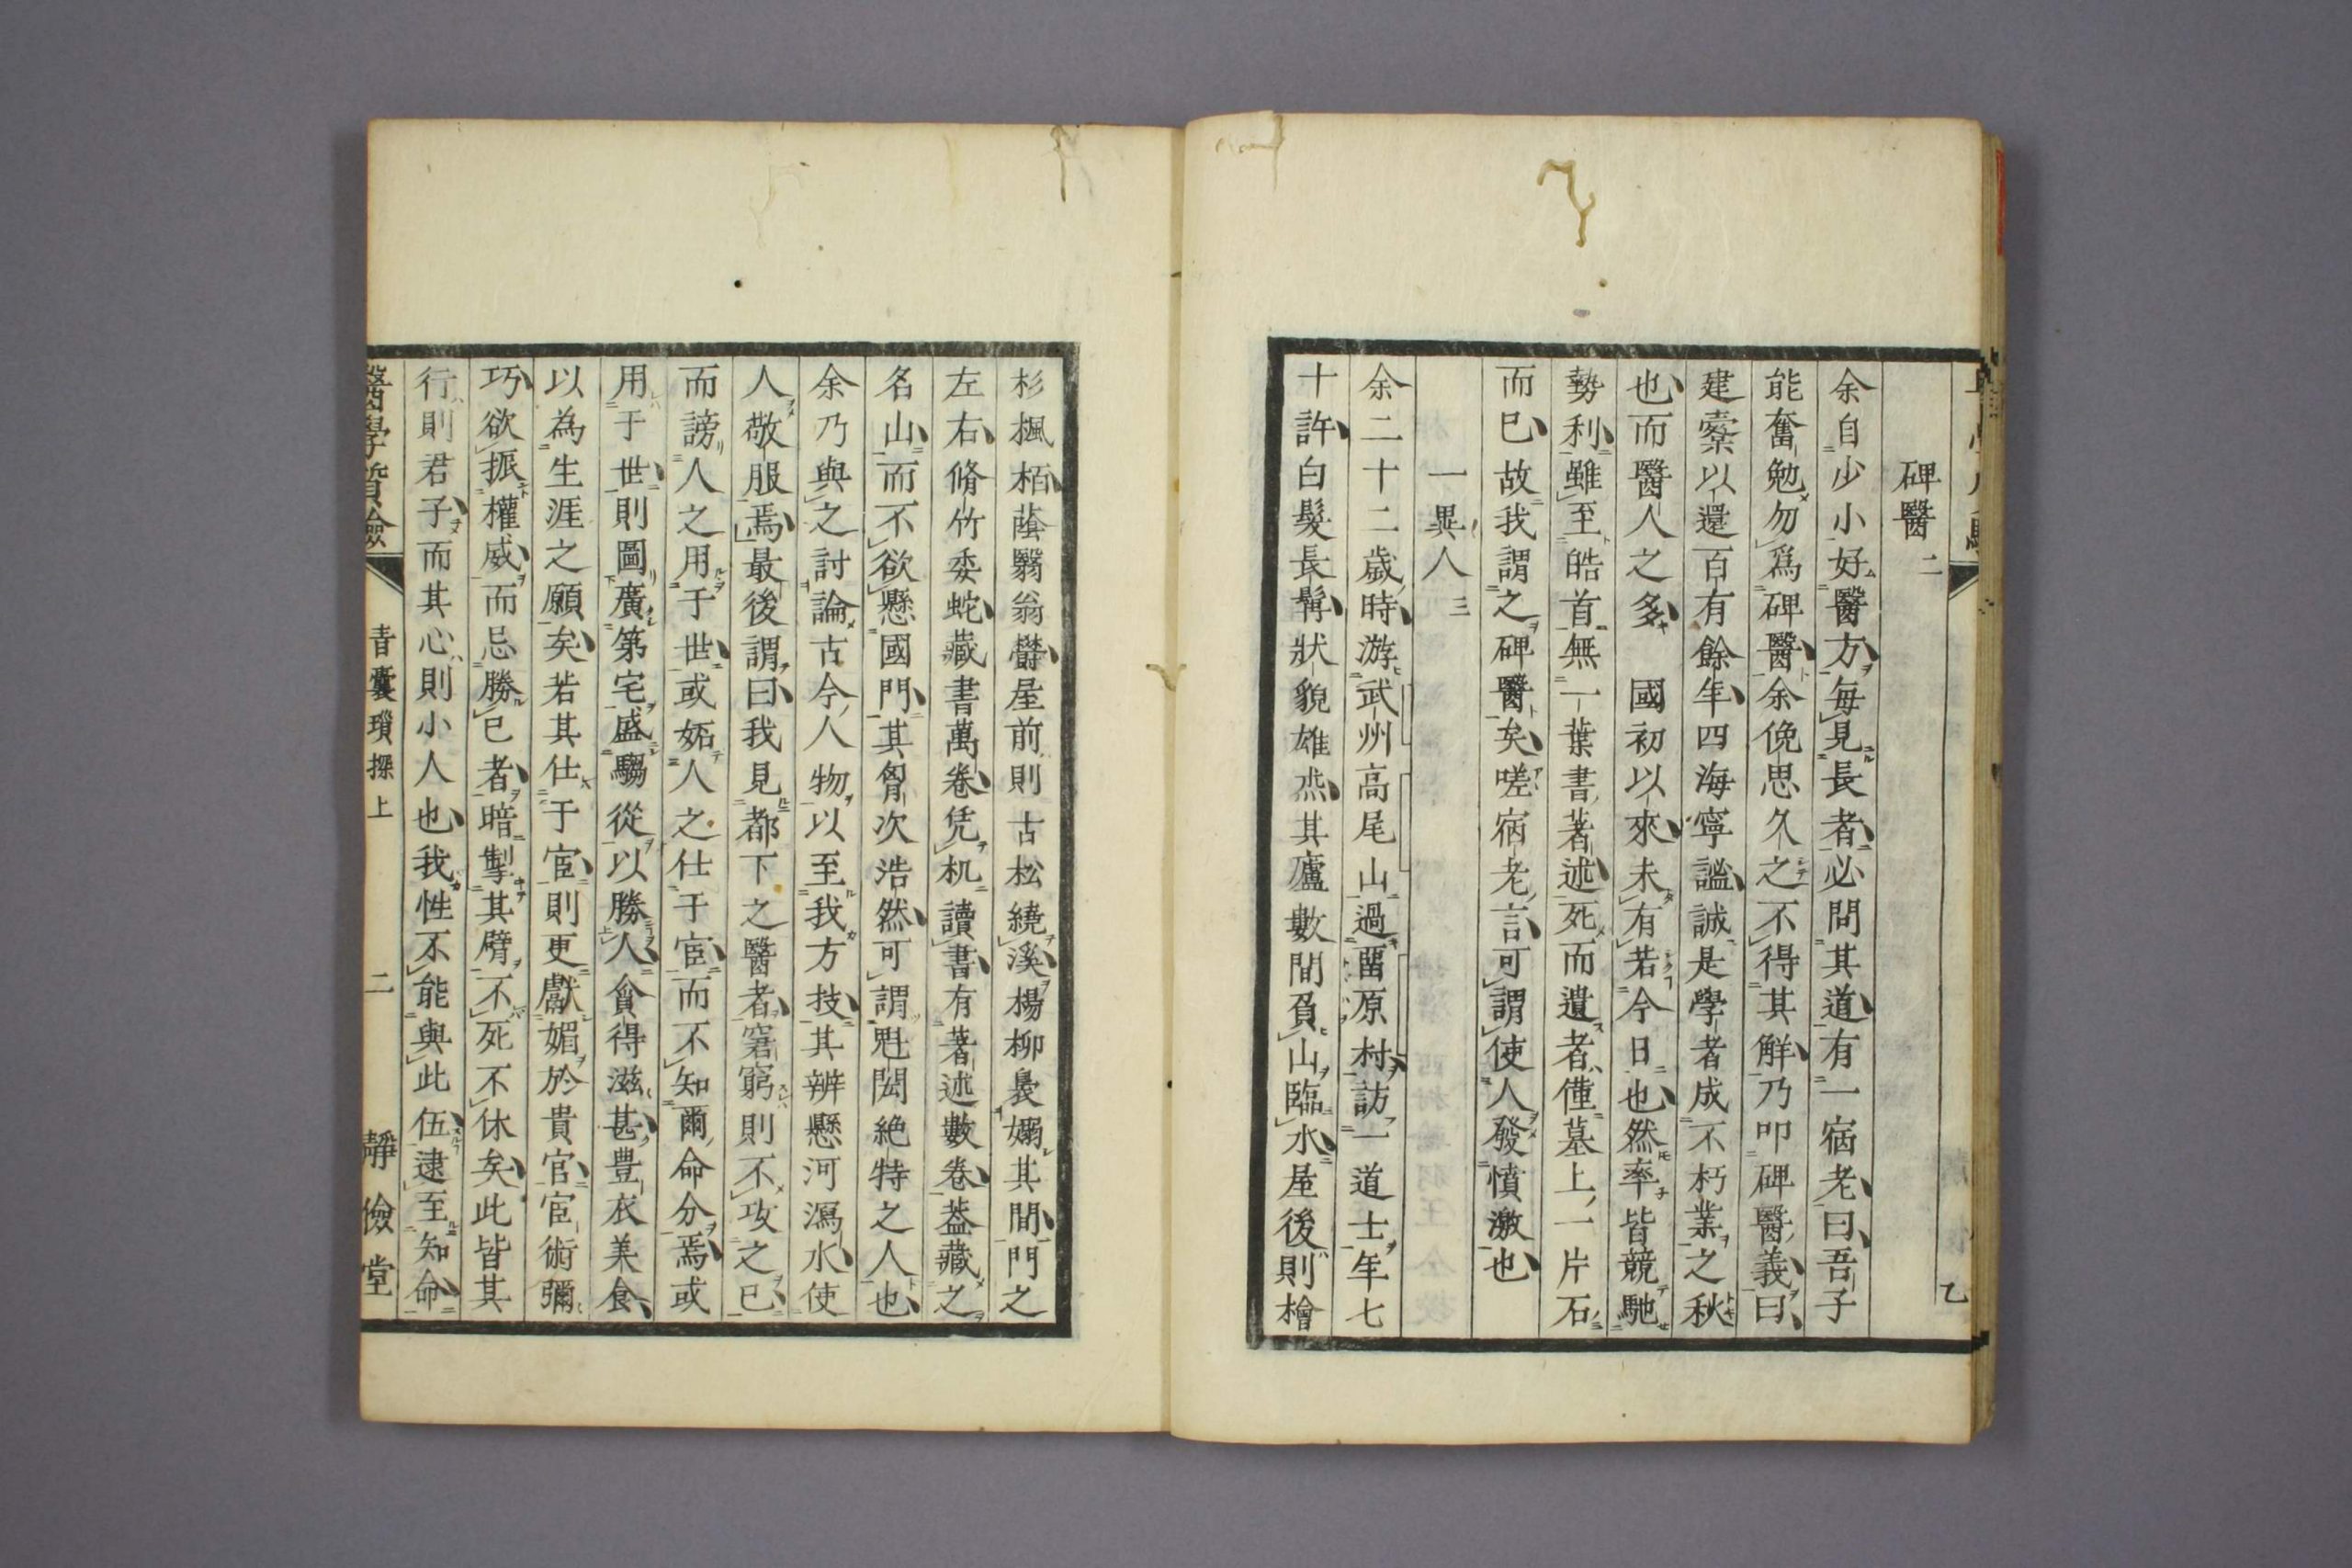 碑醫二
余自少小好醫方每見長者必問其道有一宿老曰吾子
能奮勉勿爲碑醫余俛思久之不得其觧乃叩碑醫義曰
建櫜以還百有餘年四海寧謐誠是學者成不朽業之秋
也而醫人之多 國初以來未有若今日也然率皆競馳
勢利雖至皓首無一葉書著述死而遺者僅墓上一片石
而已故我謂之碑醫矣嗟宿老言可謂使人發憤激也
一異人三
余二十二歲時游武州高尾山過畱原村訪一道士年七
十許白髮長髯狀貌雄烝其廬數間負山臨水屋後則檜
杉楓栢蔭翳蓊欝屋前則古松繞溪楊柳裊嫋其間門之
左右脩竹委蛇藏書萬卷凭机讀書有著述數卷葢藏之
名山而不欲懸國門其胷次浩然可謂魁閎絶特之人也
余乃與之討論古今人物以至我方技其辨懸河瀉水使
人敬服焉最後謂曰我見都下之醫者窘窮則不攻之已
而謗人之用于世或妬人之仕于宦而不知爾命分焉或
用于世則圖廣第宅盛騶從以勝人貪得滋甚豊衣美食
以為生涯之願矣若其仕于宦則更獻媚於貴官宦術彌
巧欲振權威而忌勝己者暗掣其臂不死不休矣此皆其
行則君子而其心則小人也我性不能與此伍逮至知命
醫學質驗 青囊瑣探上 二 靜儉堂